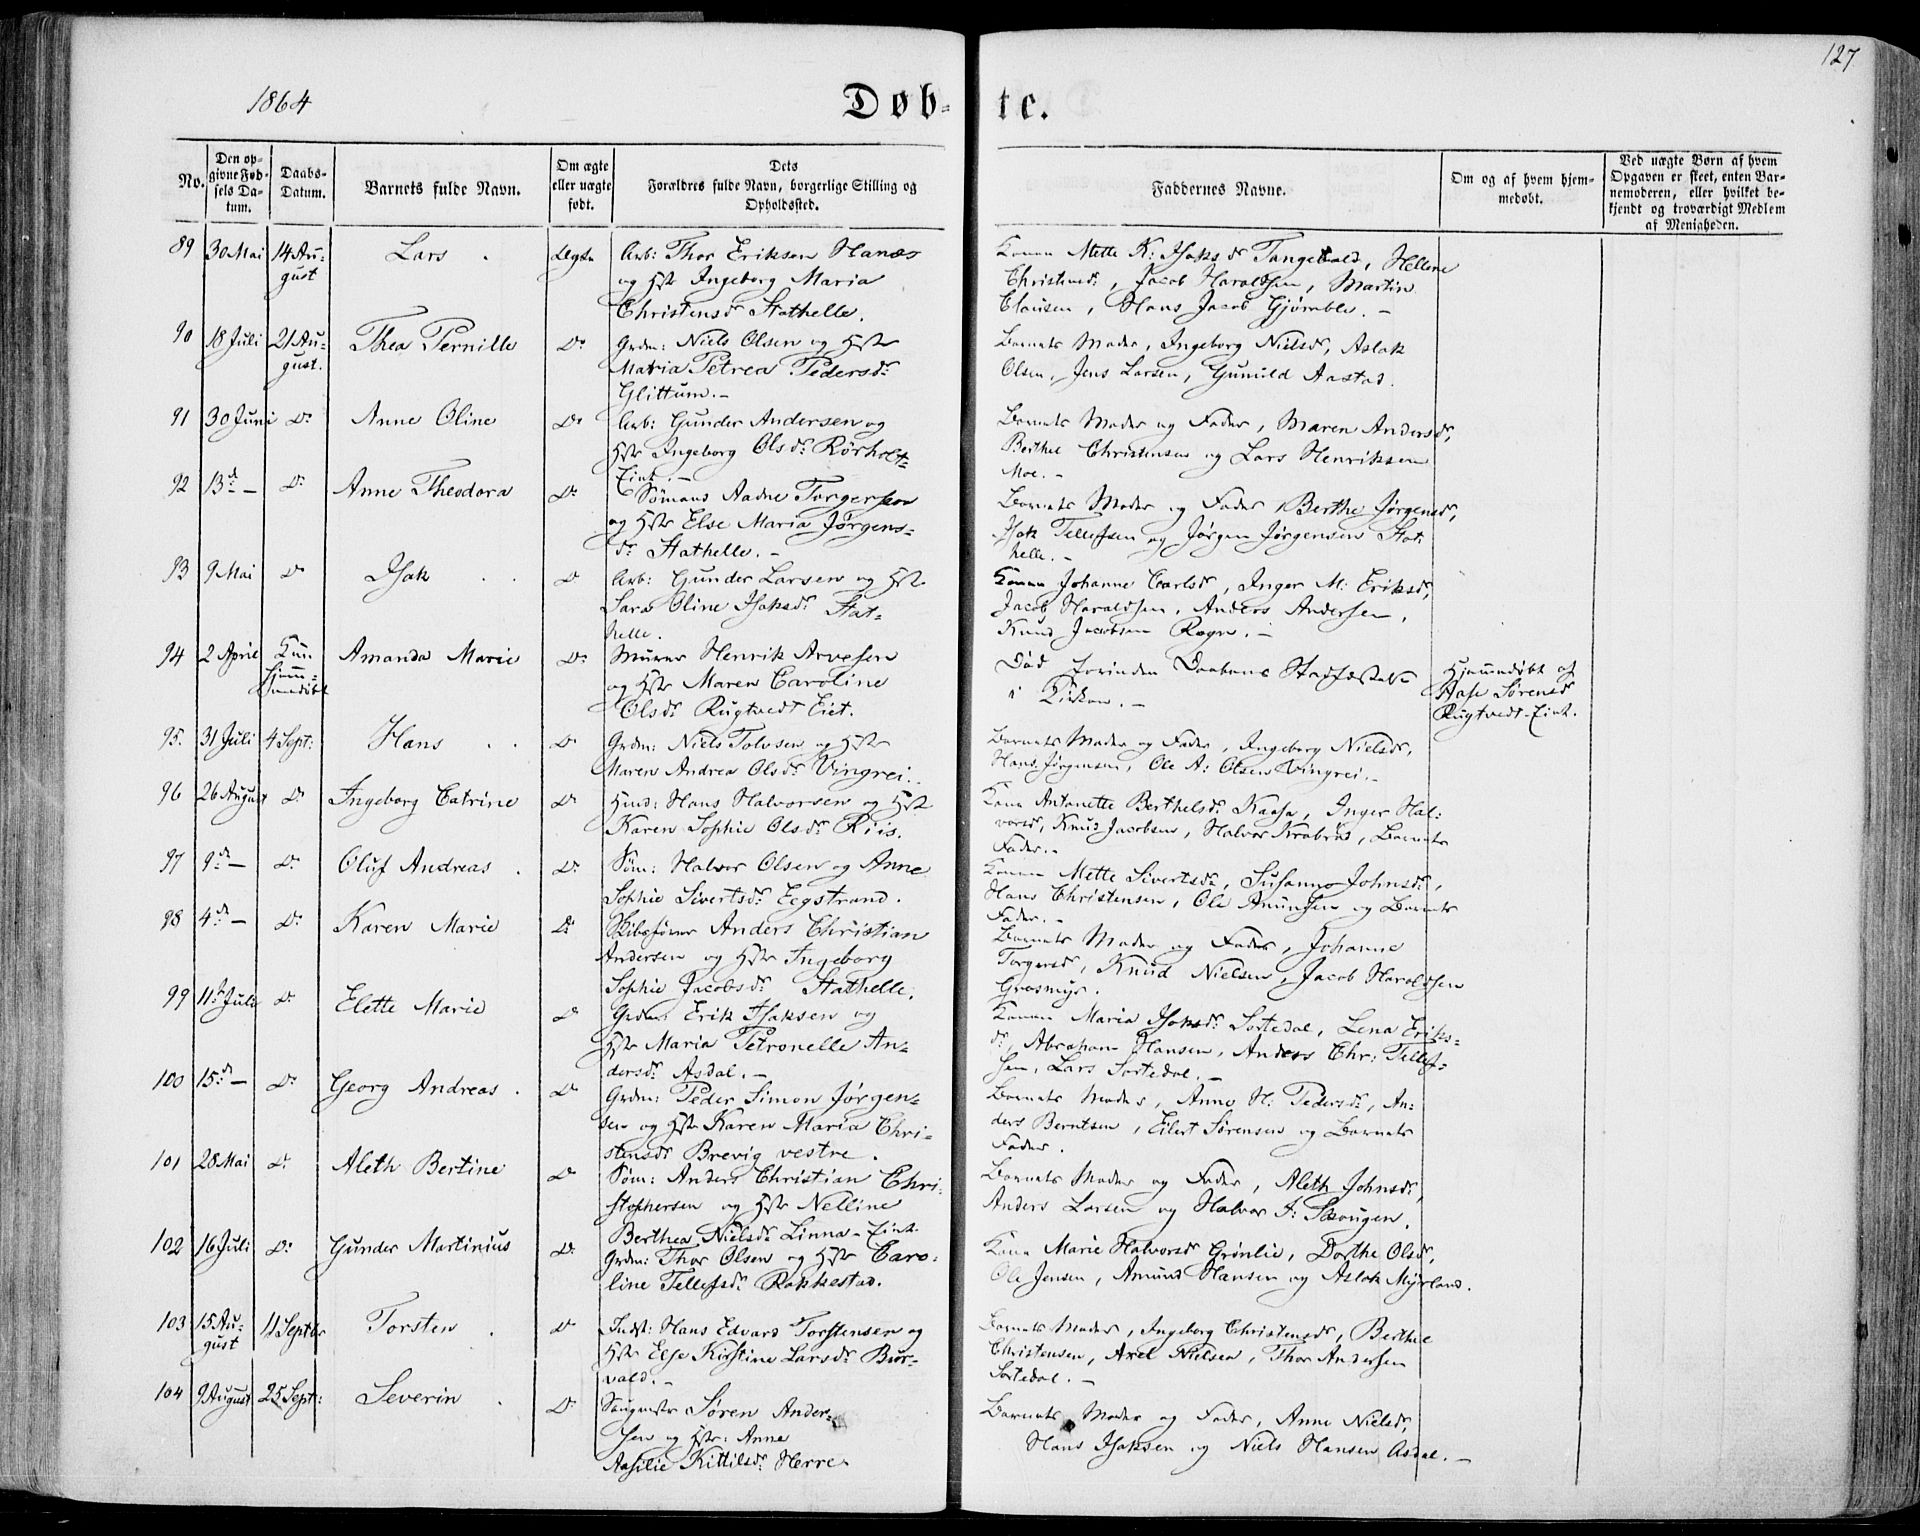 127
1864
Døb-
te.
No.
Den op-
givne Fød-
sels Da-
tum.
Daabs-
Datum.
Barnets fulde Navn.
Om ægte
eller uægte
født.
Dets
Forældres fulde Navn, borgerlige Stilling og
Opholdssted.
Faddernes Navne.
Om og af hvem hjem-
medøbt.
Ved uægte Børn af hvem
Opgaven er skeet, enten Bar-
nemoderen, eller hvilket be-
kjendt og troværdigt Medlem
af Menigheden.
89 30 Mai 14 Au-
gust
Lars
Ægte
Arb: Thor Eriksen Hanæs
og Hst Ingeborg Maria
Christensdr Stathelle.
Konen Mette K: Isaksdr Tangebald, Hellene
Christensdr, Jacob Haraldsen, Martin
Clausen, Hans Jacob Gjømble. -
90 18 Juli 21 Au-
gust.
Thea Pernille
Do
Grdm: Niels Olsen og Hst
Maria Petrea Pedersdr
Glittum. -
Barnets Moder, Ingeborg Nielsdr, Aslak
Olsen, Jens Larsen, Gunuld Aastad.
91 30 Juni Do
Anne Oline
Do
Arb: Gunder Andersen og
Hst Ingeborg Olsdr Rørholt-
Eiet. -
Barnets Moder og Fader, Maren Andersdr,
Berthe Christensen og Lars Henriksen
Moe. -
92 13 d - Do
Anne Theodora
Do
Sømand Aadne Torgersen
og Hst Else Maria Jørgens-
dr Stathelle. -
Barnets Moder og Fader, Berthe Jørgensdr,
Isak Tellefsen og Jørgen Jørgensen Stat-
helle. -
93 9 Mai Do
Isak
Do
Arb: Gunder Larsen og Hst
Sara Oline Isaksdr Stat-
helle.
Konen Johanne Carlsdr, Inger M: Eriksdr,
Jacob Haraldsen, Anders Andersen,
Knud Jacobsen Rogn. -
94 2 April Kun
hjem-
medøbt
Amanda Marie
Do
Murer Henrik Arvesen
og Hst Maren Caroline
Olsdr Rugtvedt Eiet.
Død forinden Daabens Stadfæstelse
i Kirken. -
Hjemmedøbt af
Aase Sørensdr
Rugtvedt-Eiet.
95. 31 Juli 4 Sept:
Hans
Do
Grdm: Niels Tolvsen og Hst
Maren Andrea Olsdr Vingrei.
Barnets Moder og Fader, Ingeborg Nielsdr,
Hans Jørgensen, Ole A: Olsen Vingrei. -
96 26 August Do
Ingeborg Catrine
Do
Hmd: Hans Halvorsen og Hst
Karen Sophie Olsdr Riis.
Kone Antonette Berthelsdr Kaasa, Inger Hal-
vorsdr, Knud Jacobsen, Halvor Krabrød, Barnets
Fader. -
97 9 d - Do
Oluf Andreas
Do
Søm: Halvor Olsen og Anne
Sophie Sivertsdr Eegstrand.
Konen Mette Sivertsdr, Susanne Johnsdr,
Hans Christensen, Ole Amunsen og Barnets
Fader. -
98 4 d - Do
Karen Marie
Do
Skibsfører Anders Christian
Andersen og Hst Ingeborg
Sophie Jacobsdr Stathelle.
Barnets Moder og Fader, Johanne
Torgersdr, Knud Nielsen, Jacob Haroldsen
Grasmyr.
99 11 Juli Do
Elette Marie
Do
Grdm: Erik Isaksen og
Hst Maria Petronelle An-
dersdr Asdal. -
Konen Maria Isaksdr Sortedal, Lena Eriks-
dr, Abraham Hansen, Anders Chr: Tellef-
sen, Lars Sortedal. -
100 15 d - Do
Georg Andreas
Do
Grdm: Peder Simon Jørgen-
sen og Hst Karen Maria Chri-
stensdr Brevig vestre.
Barnets Moder, Anne H: Pedersdr, An-
ders Berntsen, Eilert Sørensen og Barnets
Fader.
101 28 Mai Do
Aleth Bertine
Do
Søm: Anders Christian Chri-
stophersen og Hst Nelline
Berthea Nielsdr Linna-Eiet
Barnets Moder og Fader, Aleth Johnsdr,
Anders Larsen og Halvor I: Skougen.
102 16 Juli Do
Gunder Martinius
Do
Grdm: Thor Olsen og Hst Caro-
line Tellefsdr Rakkestad.
Kone Marie Halvorsdr Grønlie, Dorthe Olsdr,
Ole Jensen, Amund Hansen og Aslak Myrland.
103 15 Au-
gust
11 Septbr
Torsten
Do
Indst: Hans Edvard Torstensen og
Hst Else Kirstine Larsdr Bur-
vald. -
Barnets Moder, Ingeborg Christensdr, Berthe
Christensen, Axel Nielsen, Thor Andersen
Sortedal. -
104 9 August 25 Sept:
Severin
Do
Saugmester Søren Ander-
sen og Hst: Anne
Aasilie Kittilsdr Herre
Barnets Moder og Fader, Anne Nielsdr,
Hans Isaksen og Niels Hansen Asdal. -